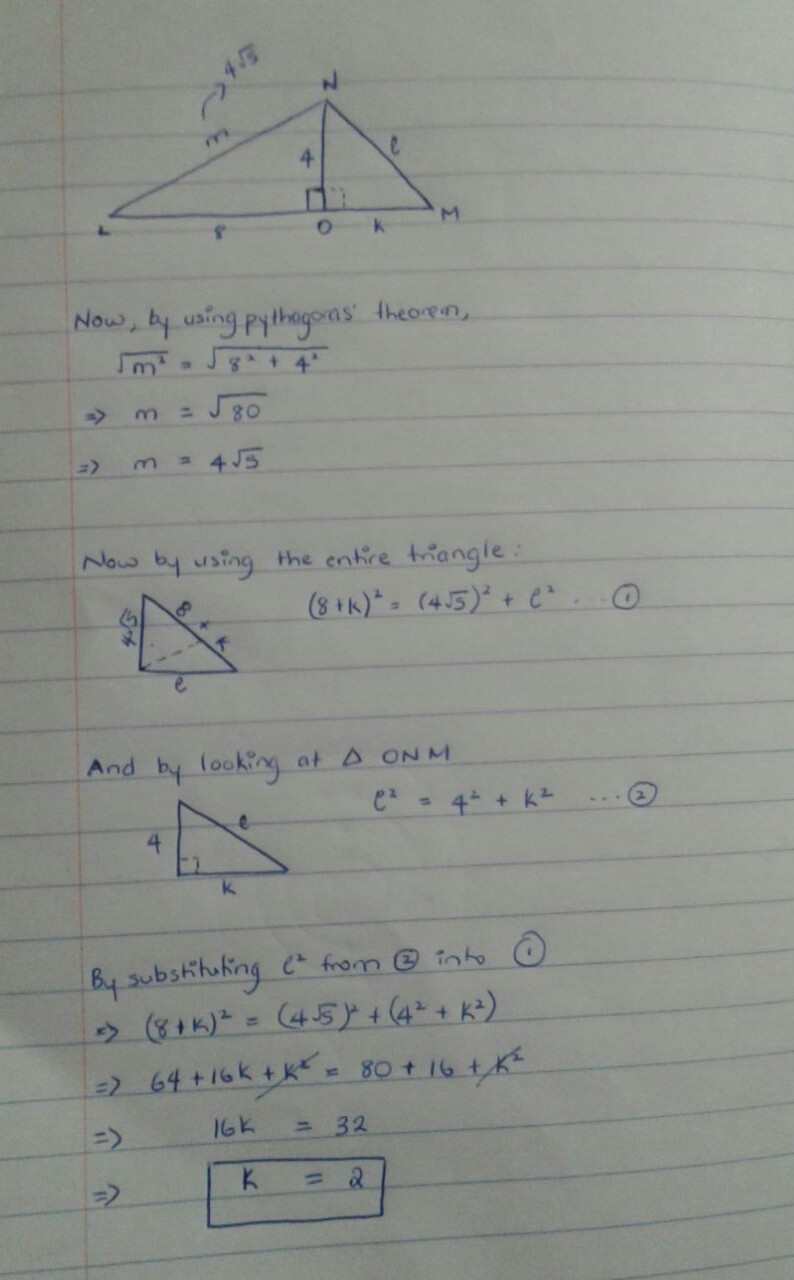 4√5
N
m
4
l
L
8
O
K
M
Now, by using pythagoras' theorem,
√m² = √8² + 4²
=> m = √80
=> m = 4√5
Now by using the entire triangle:
4√5
8
K
l
(8+K)² = (4√5)² + l² ... ①
And by looking at Δ ONM
4
l
K
l² = 4² + K² ... ②
By substituting l² from ② into ①
=> (8+K)² = (4√5)² + (4² + K²)
=> 64 + 16K + K² = 80 + 16 + K²
=> 16K = 32
=> K = 2